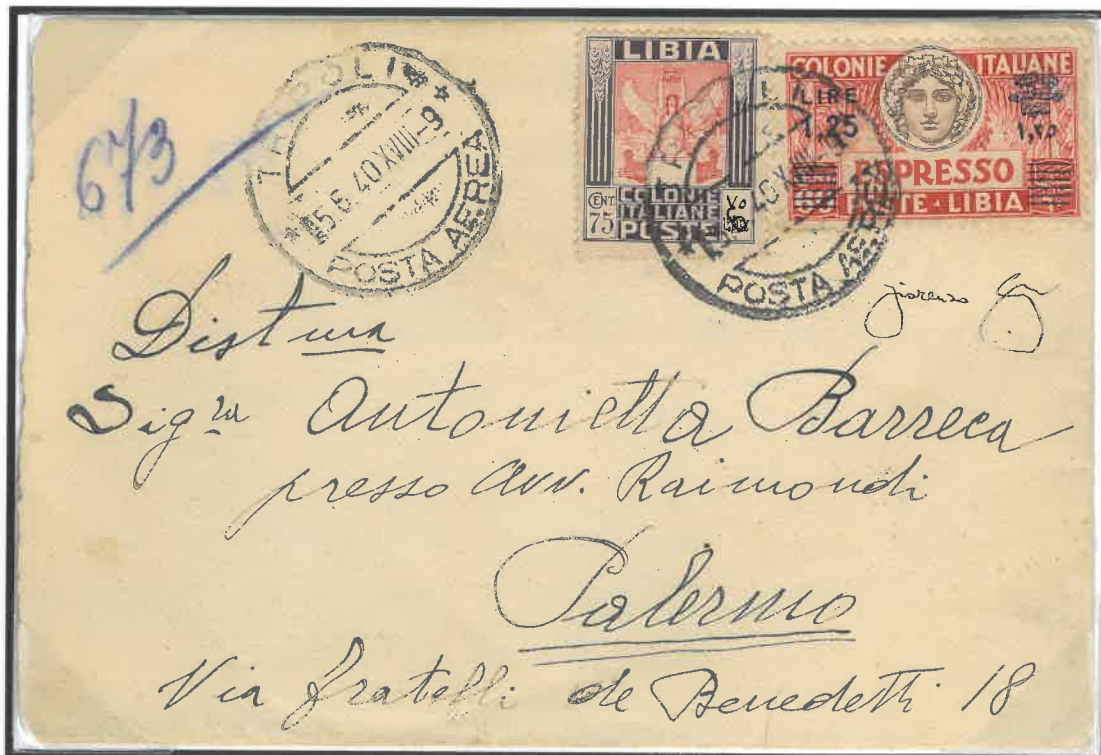 673
TRIPOLI
25.6.40.XVIII-9
POSTA AEREA
LIBIA
CENT
75
COLONIE
ITALIANE
POSTE
٧٥
COLONIE ITALIANE
LIRE
1,25
١،٢٥
ESPRESSO
POSTE · LIBIA
40.XVIII
POSTA AEREA
fiorenzo
Dist ma
Sig ra Antonietta Barreca
presso Avv. Raimondi
Palermo
Via fratelli de Benedetti 18